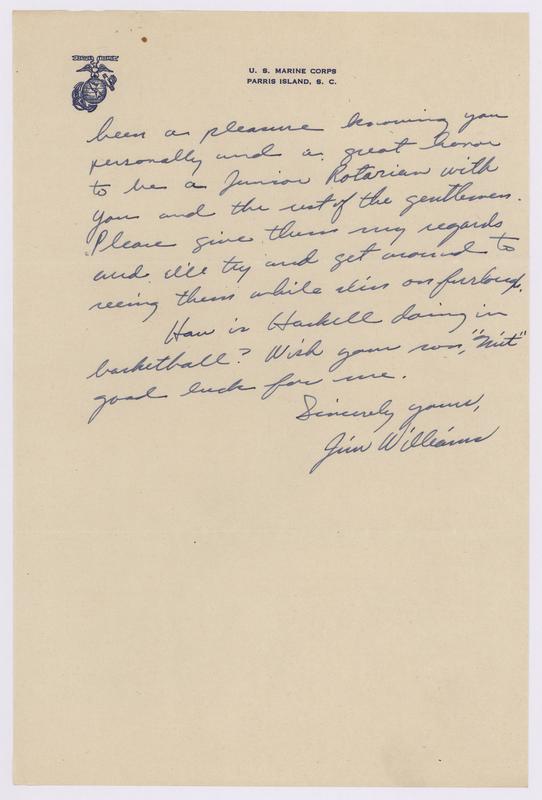 U. S. MARINE CORPS
PARRIS ISLAND, S. C.
been a pleasure knowing you
personally and a great honor
to be a Junior Rotarian with
you and the rest of the gentlemen.
Please give them my regards
and I'll try and get around to
seeing them while I'm on furlough.
How is Haskell doing in
basketball? Wish your son, "Mit"
good luck for me.
Sincerely yours,
Jim Williams